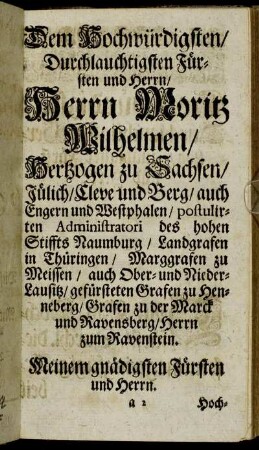 Dem Hochwürdigsten/
Durchlauchtigsten Für-
sten und Herrn/
Herrn Moritz
Wilhelmen/
Hertzogen zu Sachsen/
Jülich/ Cleve und Berg/ auch
Engern und Westphalen/ postulir-
ten Administratori des hohen
Stiffts Naumburg/ Landgrafen
in Thüringen/ Marggrafen zu
Meissen/ auch Ober- und Nieder-
Lausitz/ gefürsteten Grafen zu Hen-
neberg/ Grafen zu der Marck
und Ravensberg/ Herrn
zum Ravenstein.
Meinem gnädigsten Fürsten
und Herrn.
a 2 Hoch-